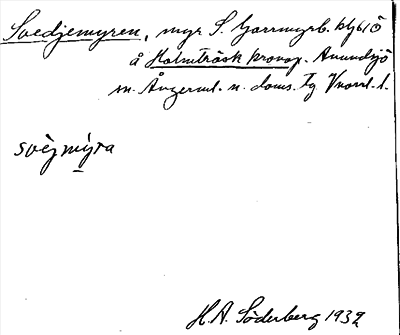 Svedjemyren, myr S. Gorrmyrb. blg 61 ö
å Holmträsk kronop. Anundsjö
sn. Ångerml. n. doms. Tg Vnorrl. l.
svèjmýra
H.A. Söderberg 1932